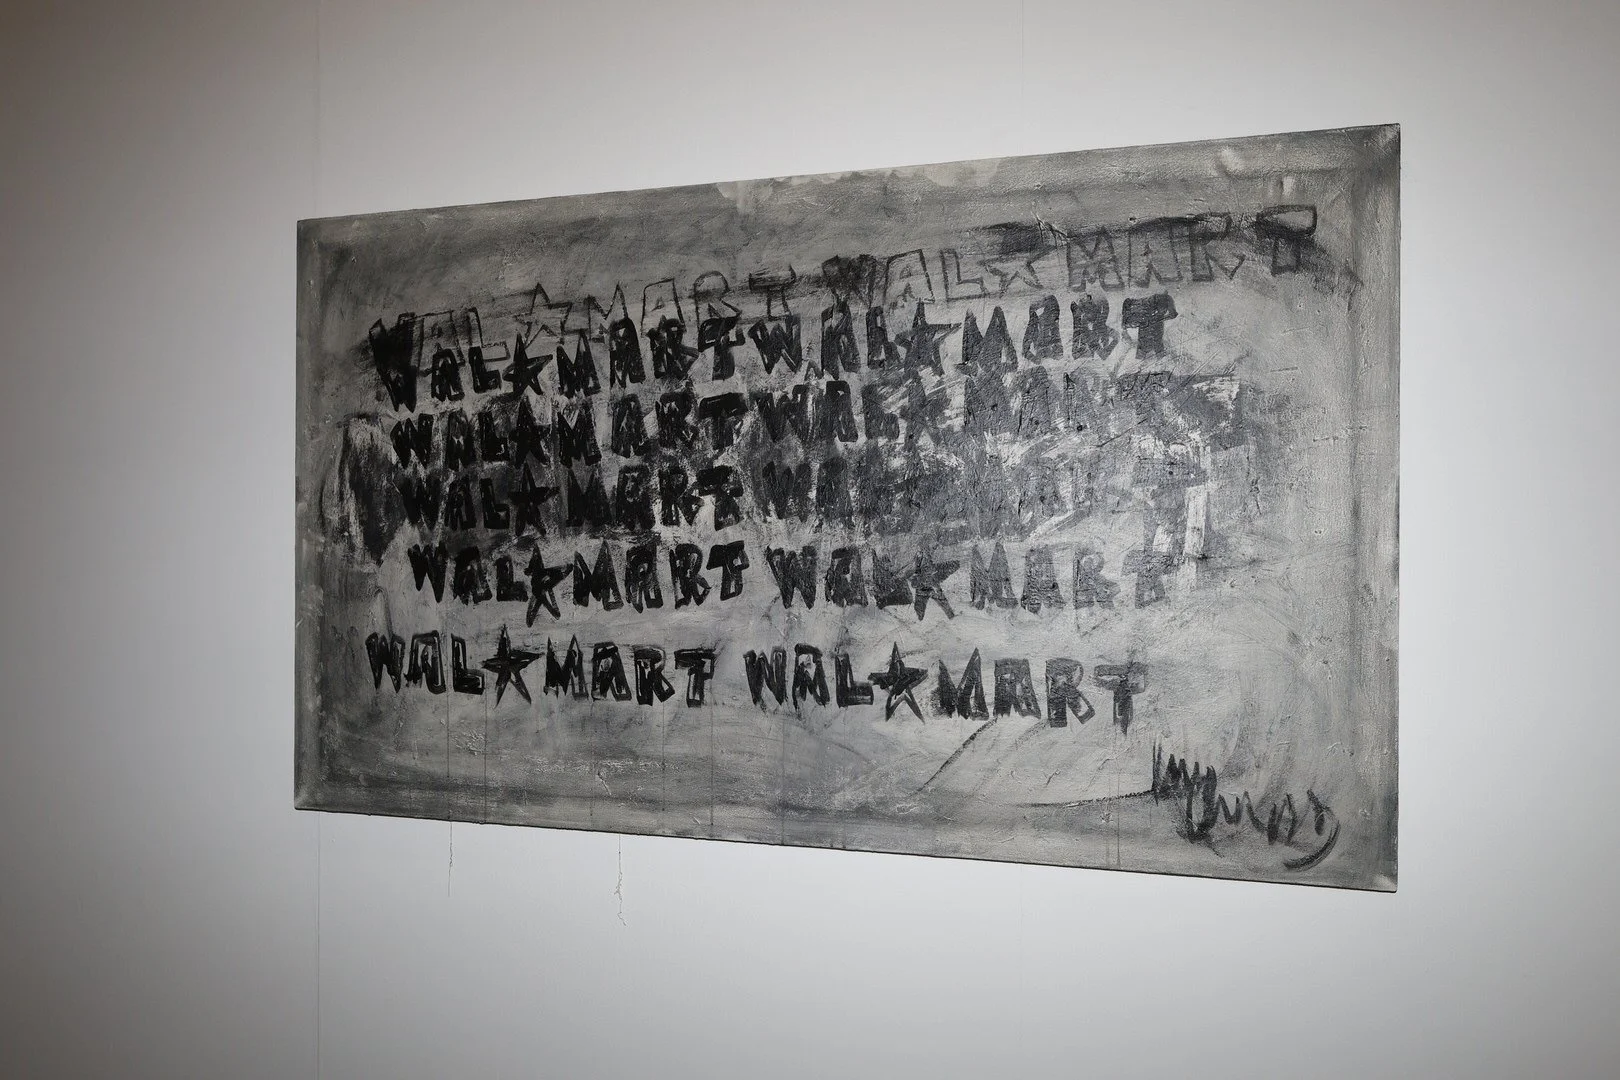 WAL★MART WAL★MART
WAL★MART WAL★MART
WAL★MART WAL★MART
WAL★MART WAL★MART
WAL★MART WAL★MART
WAL★MART WAL★MART